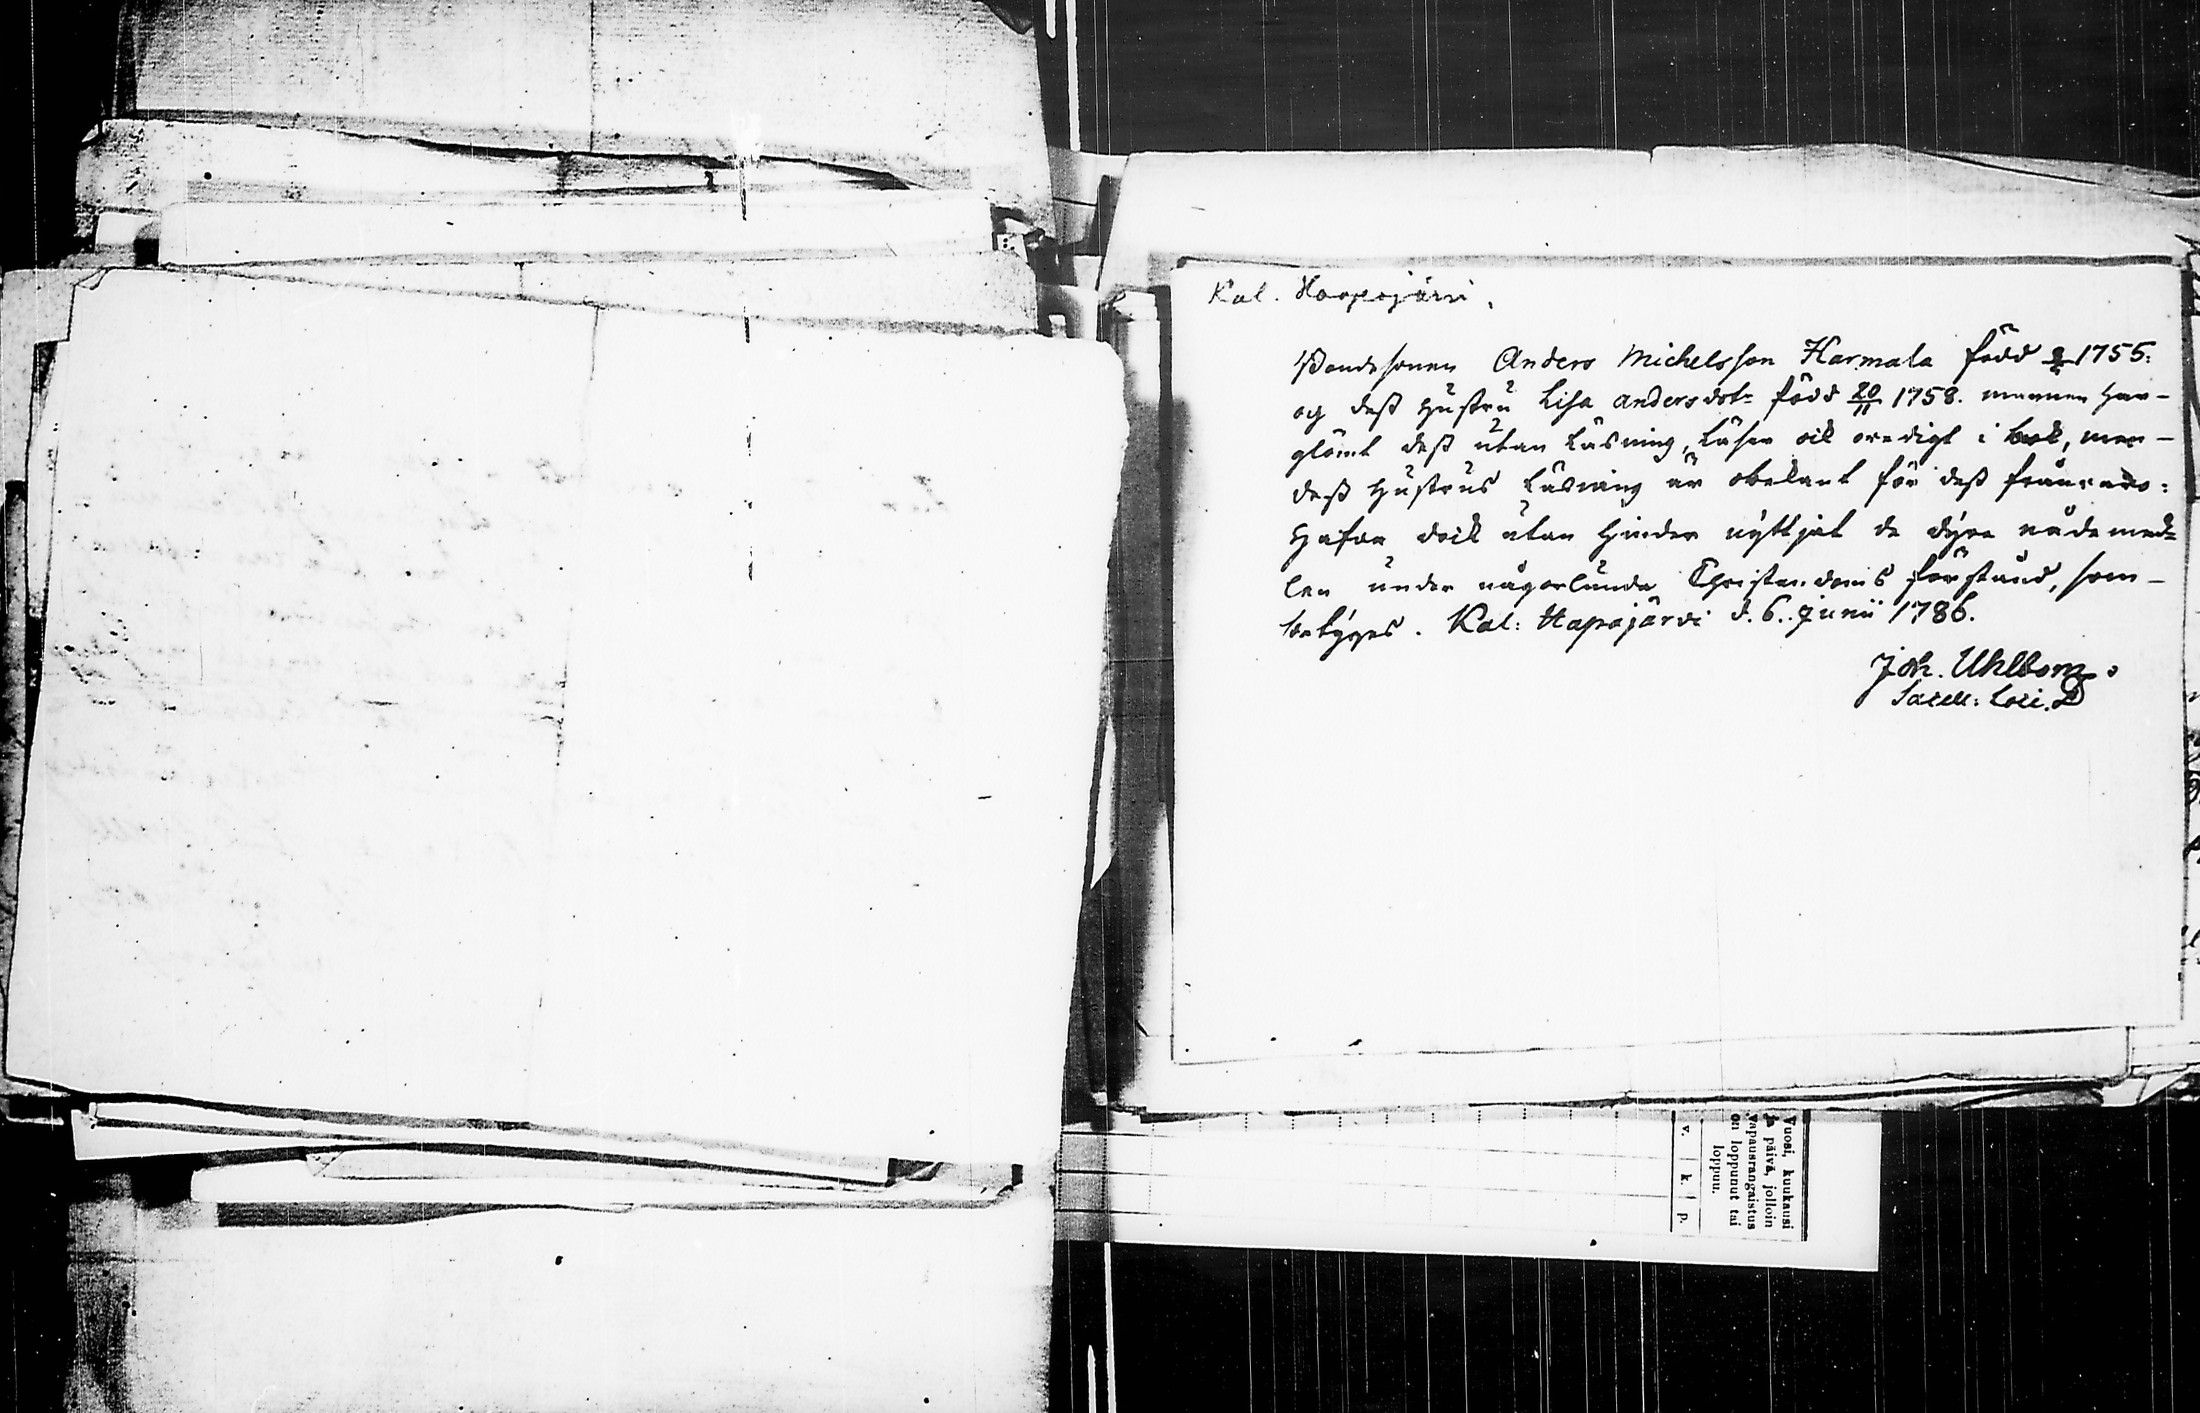 Kal. Haapajärvi.
Bondesonen Anders Michelsson Harmala född 1755:
og dess hustru Lisa Andersdotr född 20/11 1758. mannen har-
glömt dess utan läsning, läser ock oredigt i bok, men-
dess hustrus läsning är obekant för dess frånvaro:
Hafva dock utan hinder nyttjat de dyra nådemed-
len under någorlunda Christendoms förstånd, som-
betyges. Kal: Hapajärvi d. 6. Junii 1786.
Joh. Uhlbom.
Sacell: Loci.
Vuosi, kuukausi
ja päivä, jolloin
vapausrangaistus
on loppunut tai
loppuu.
v. k. p.